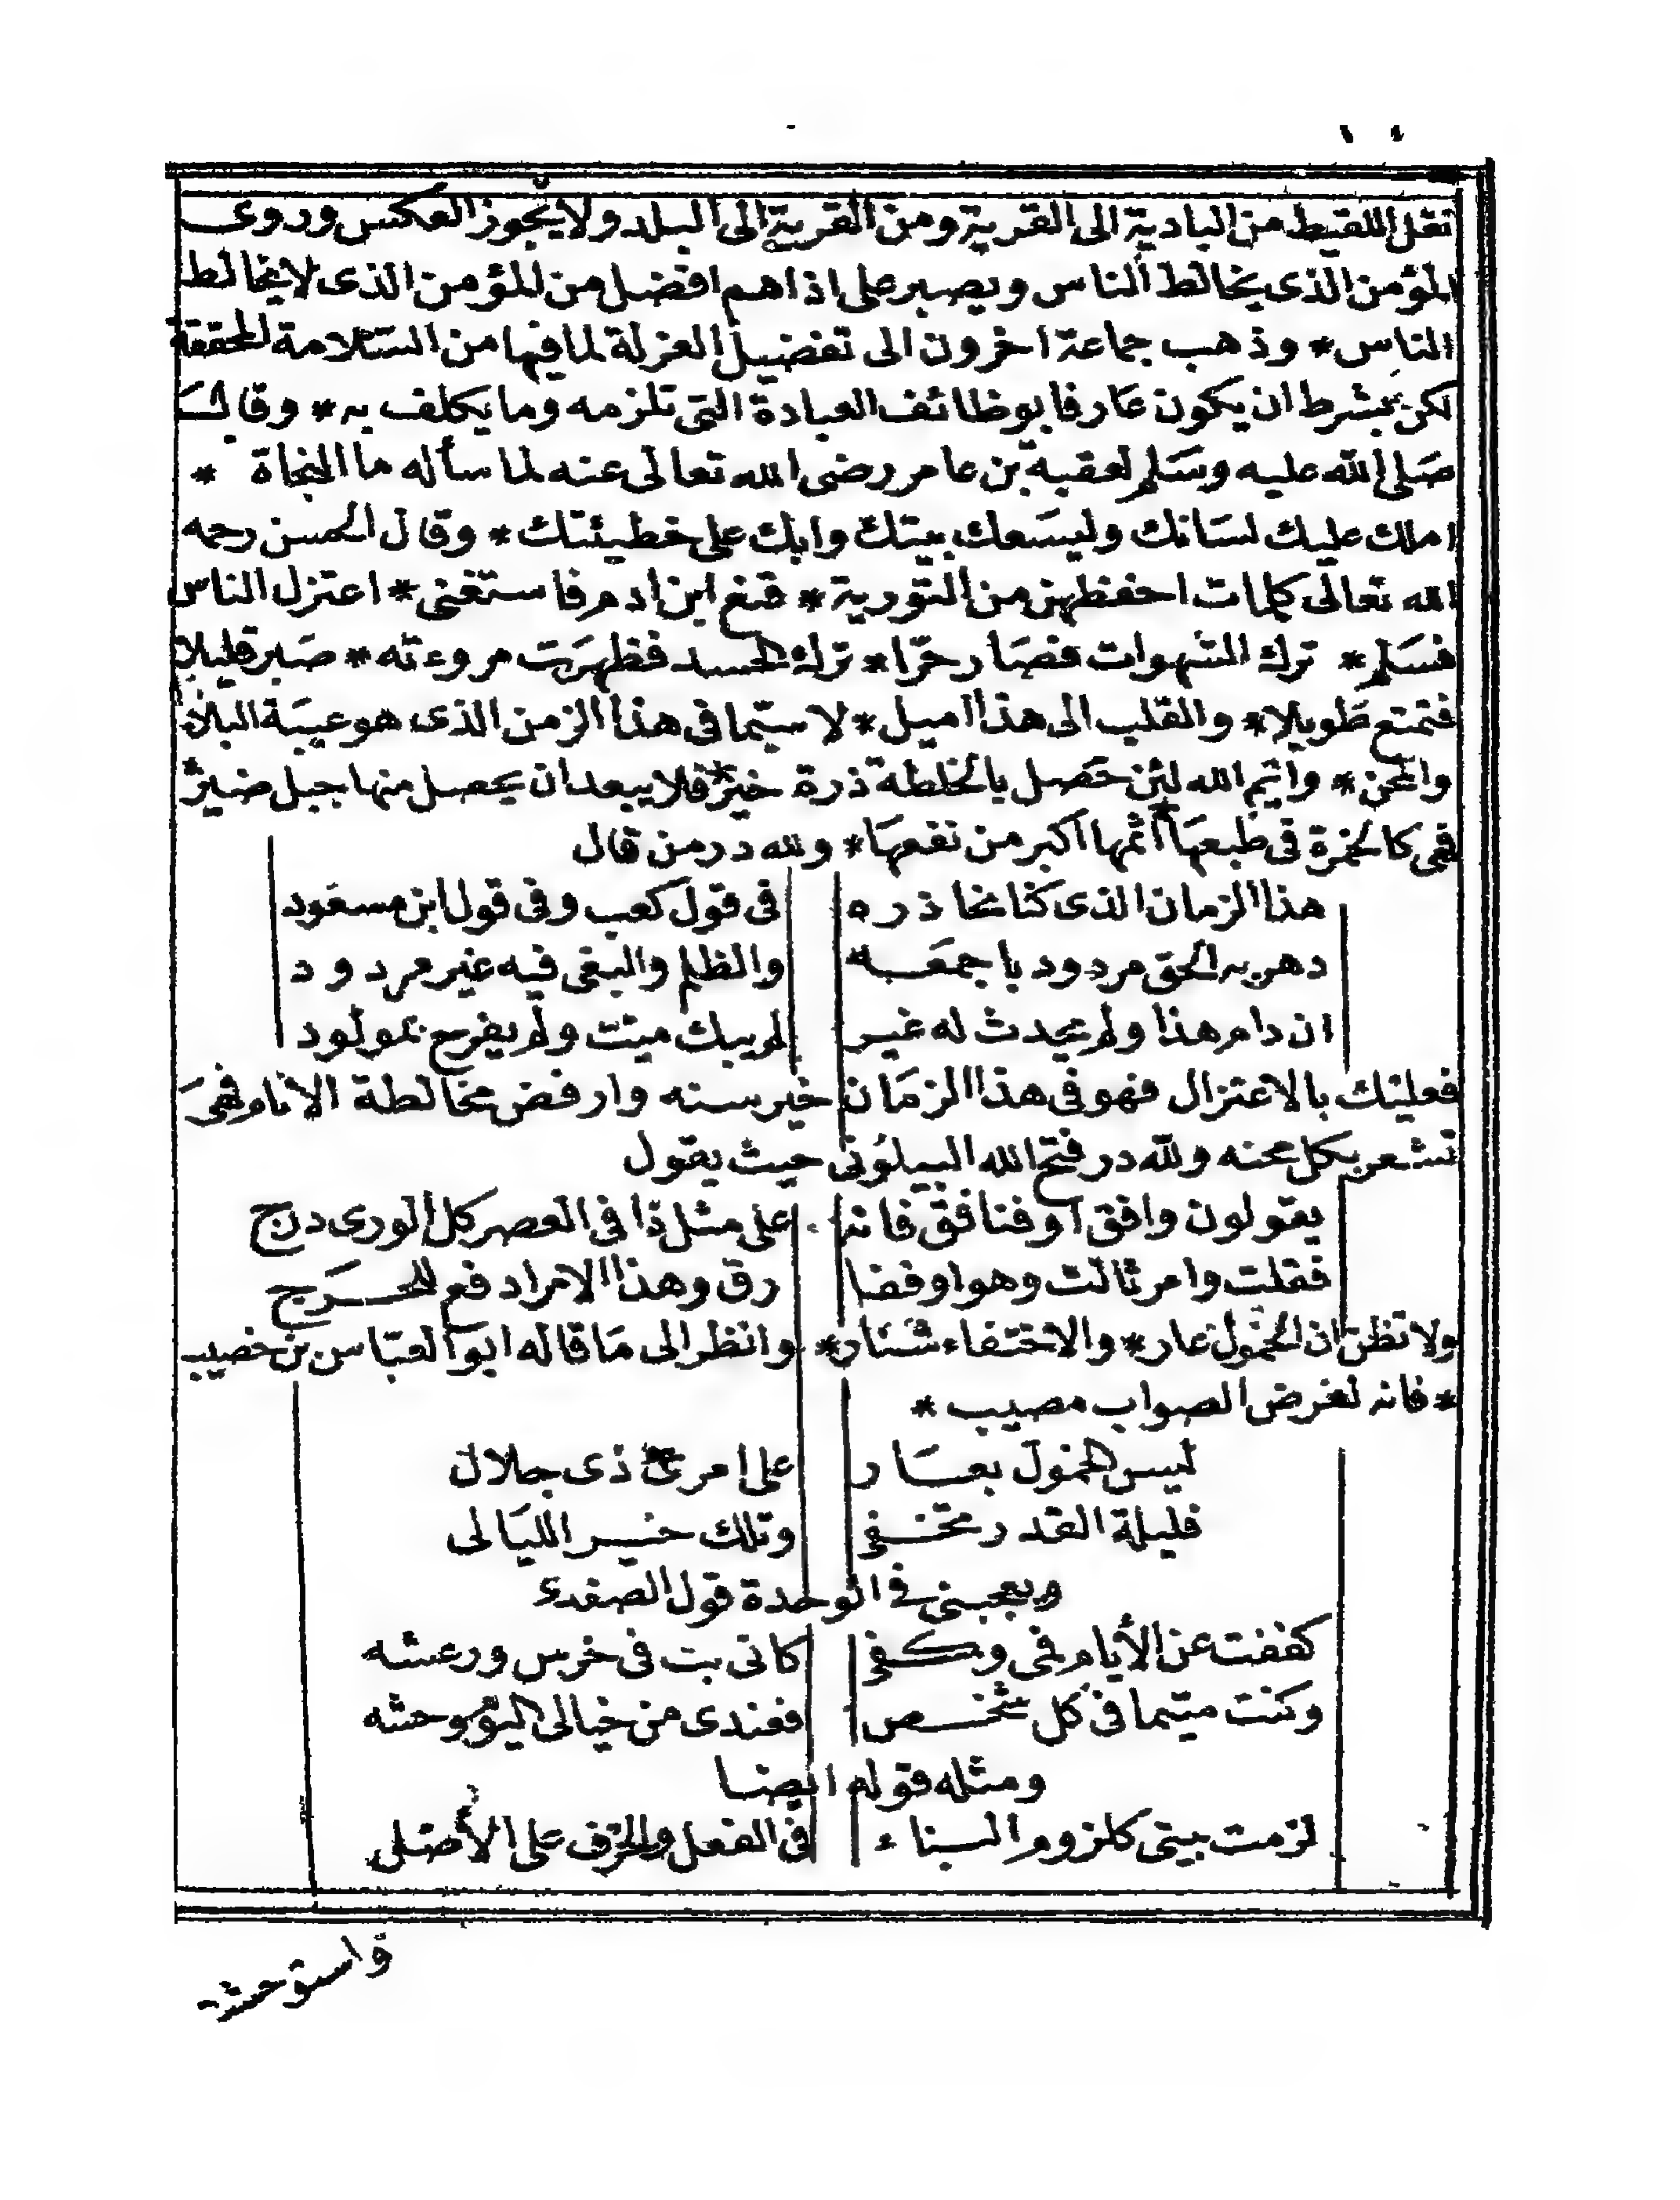 نقل اللقيط من البادية الى القرية ومن القرية الى البلد ولا يجوز العكس وروى
المؤمن الذى يخالط الناس ويصبر على اذاهم افضل من المؤمن الذى لا يخالط
الناس * وذهب جماعة اخرون الى تفضيل العزلة لما فيها من السلامة المحققة
لكن بشرط ان يكون عارفا بوظائف العبادة التى تلزمه وما يكلف به * وقال
صلى الله عليه وسلم لعقبة بن عامر رضى الله تعالى عنه لما سأله ما النجاة *
املك عليك لسانك وليسعك بيتك وابك على خطيئتك * وقال الحسن رحمه
الله تعالى كلمات احفظهن من التورية * قنع ابن ادم فاستغنى * اعتزل الناس
فسلم * ترك الشهوات فصار حرّا * ترك الحسد فظهرت مروءته * صبر قليلا
فتمتع طويلا * والقلب الى هذا اميل * لا سيّما فى هذا الزمن الذى هو عيبة البلاء
والمحن * وايم الله لئن حصل بالخلطة ذرة خير * فلا يبعد ان يحصل منها جبل ضير *
فهى كالخمرة فى طبعها اثمها اكبر من نفعها * ولله در من قال
هذا الزمان الذى كنا نحاذره فى قول كعب وفى قول ابن مسعود
دهر به الحق مردود باجمعه والظلم والبغى فيه غير مردود
ان دام هذا ولم يحدث له غير لم يبك ميت ولم يفرح بمولود
فعليك بالاعتزال فهو فى هذا الزمان خير سنه وارفض مخالطة الانام فهى
تشعر بكل محنه ولله در فتح الله البيلونى حيث يقول
يقولون وافق او فنافق فانه على مثل ذا فى العصر كل الورى درج
فقلت وامر ثالث وهو او ففا رق وهذا الامر ادفع للحرج
ولا تظن ان الخمول عار * والاختفاء شنار * وانظر الى ما قاله ابو العباس بن خصيب
* فانه لغرض الصواب مصيب *
ليس الخمول بعار على امرئ ذى جلال
فليلة القدر تخفى وتلك خير الليالى
ويعجبنى فى الوحدة قول الصفدى
كففت عن الأيام فمى وكفى كانى بت فى خرس ورعشه
وكنت متيما فى كل شخص فعندى من خيالى اليوم وحشه
ومثله قوله ايضا
لزمت بيتى كلزوم البناء فى الفعل والحرف على الأصل
واستوحشت